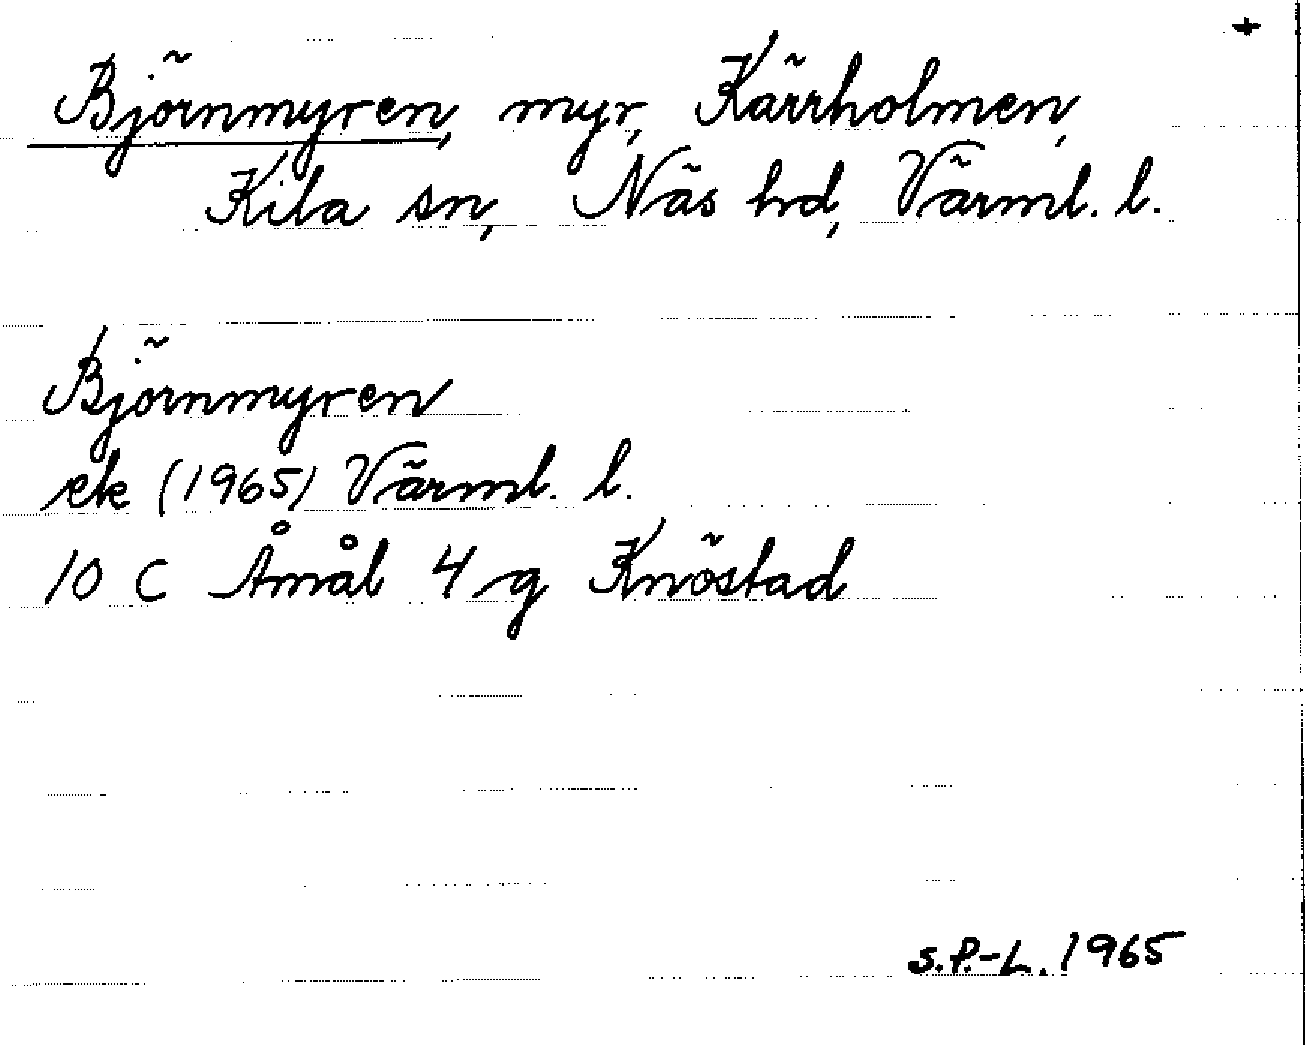 +
Björnmyren, myr, Kärrholmen,
Kila sn, Näs hd, Värml. l.
Björnmyren
ek (1965) Värml. l.
10 C Åmål 4 g Knöstad
S.P.-L. 1965